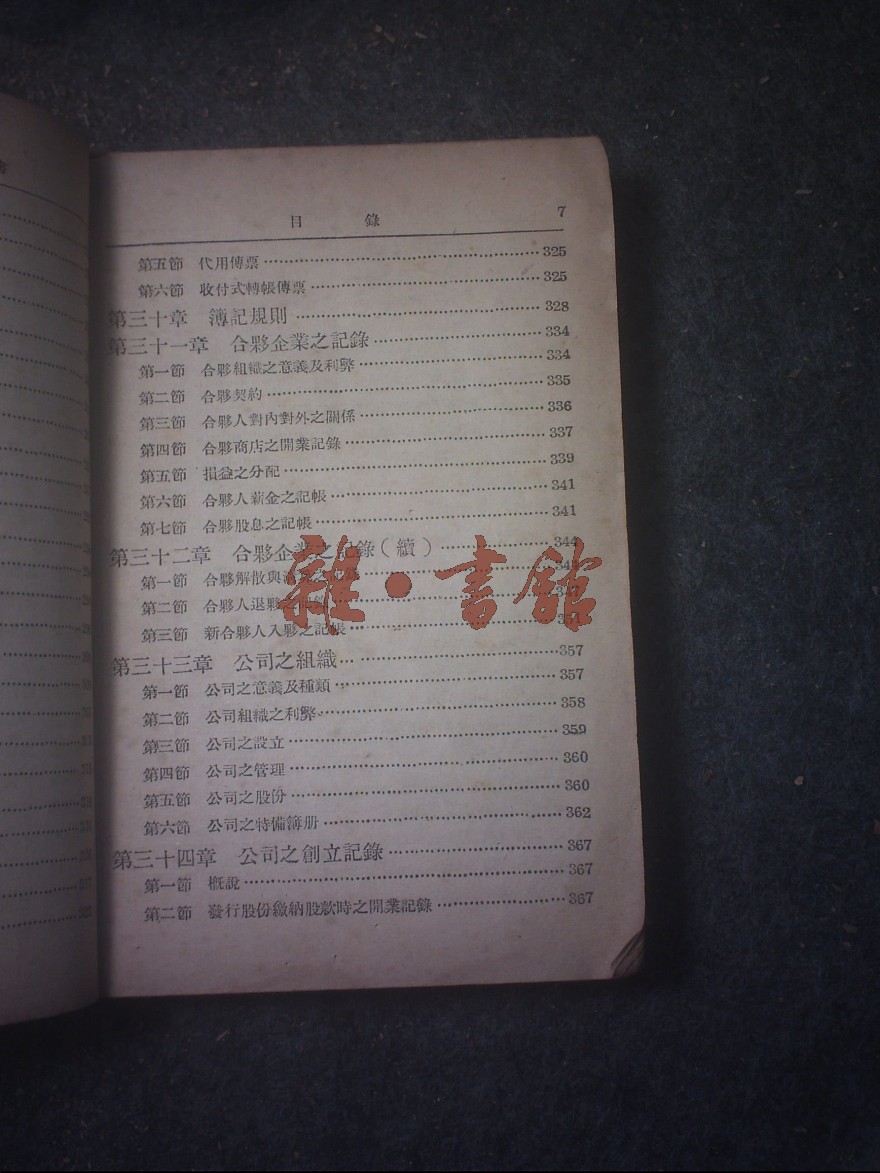 目 錄 7
第五節 代用傳票 325
第六節 收付式轉帳傳票 325
第三十章 簿記規則 328
第三十一章 合夥企業之記錄 334
第一節 合夥組織之意義及利弊 334
第二節 合夥契約 335
第三節 合夥人對內對外之關係 336
第四節 合夥商店之開業記錄 337
第五節 損益之分配 339
第六節 合夥人薪金之記帳 341
第七節 合夥股息之記帳 341
第三十二章 合夥企業之記錄(續) 344
第一節 合夥解散與
第二節 合夥人退夥之
第三節 新合夥人入夥之記帳
雜·書館
第三十三章 公司之組織 357
第一節 公司之意義及種類 357
第二節 公司組織之利弊 358
第三節 公司之設立 359
第四節 公司之管理 360
第五節 公司之股份 360
第六節 公司之特備簿册 362
第三十四章 公司之創立記錄 367
第一節 概說 367
第二節 發行股份繳納股款時之開業記錄 367